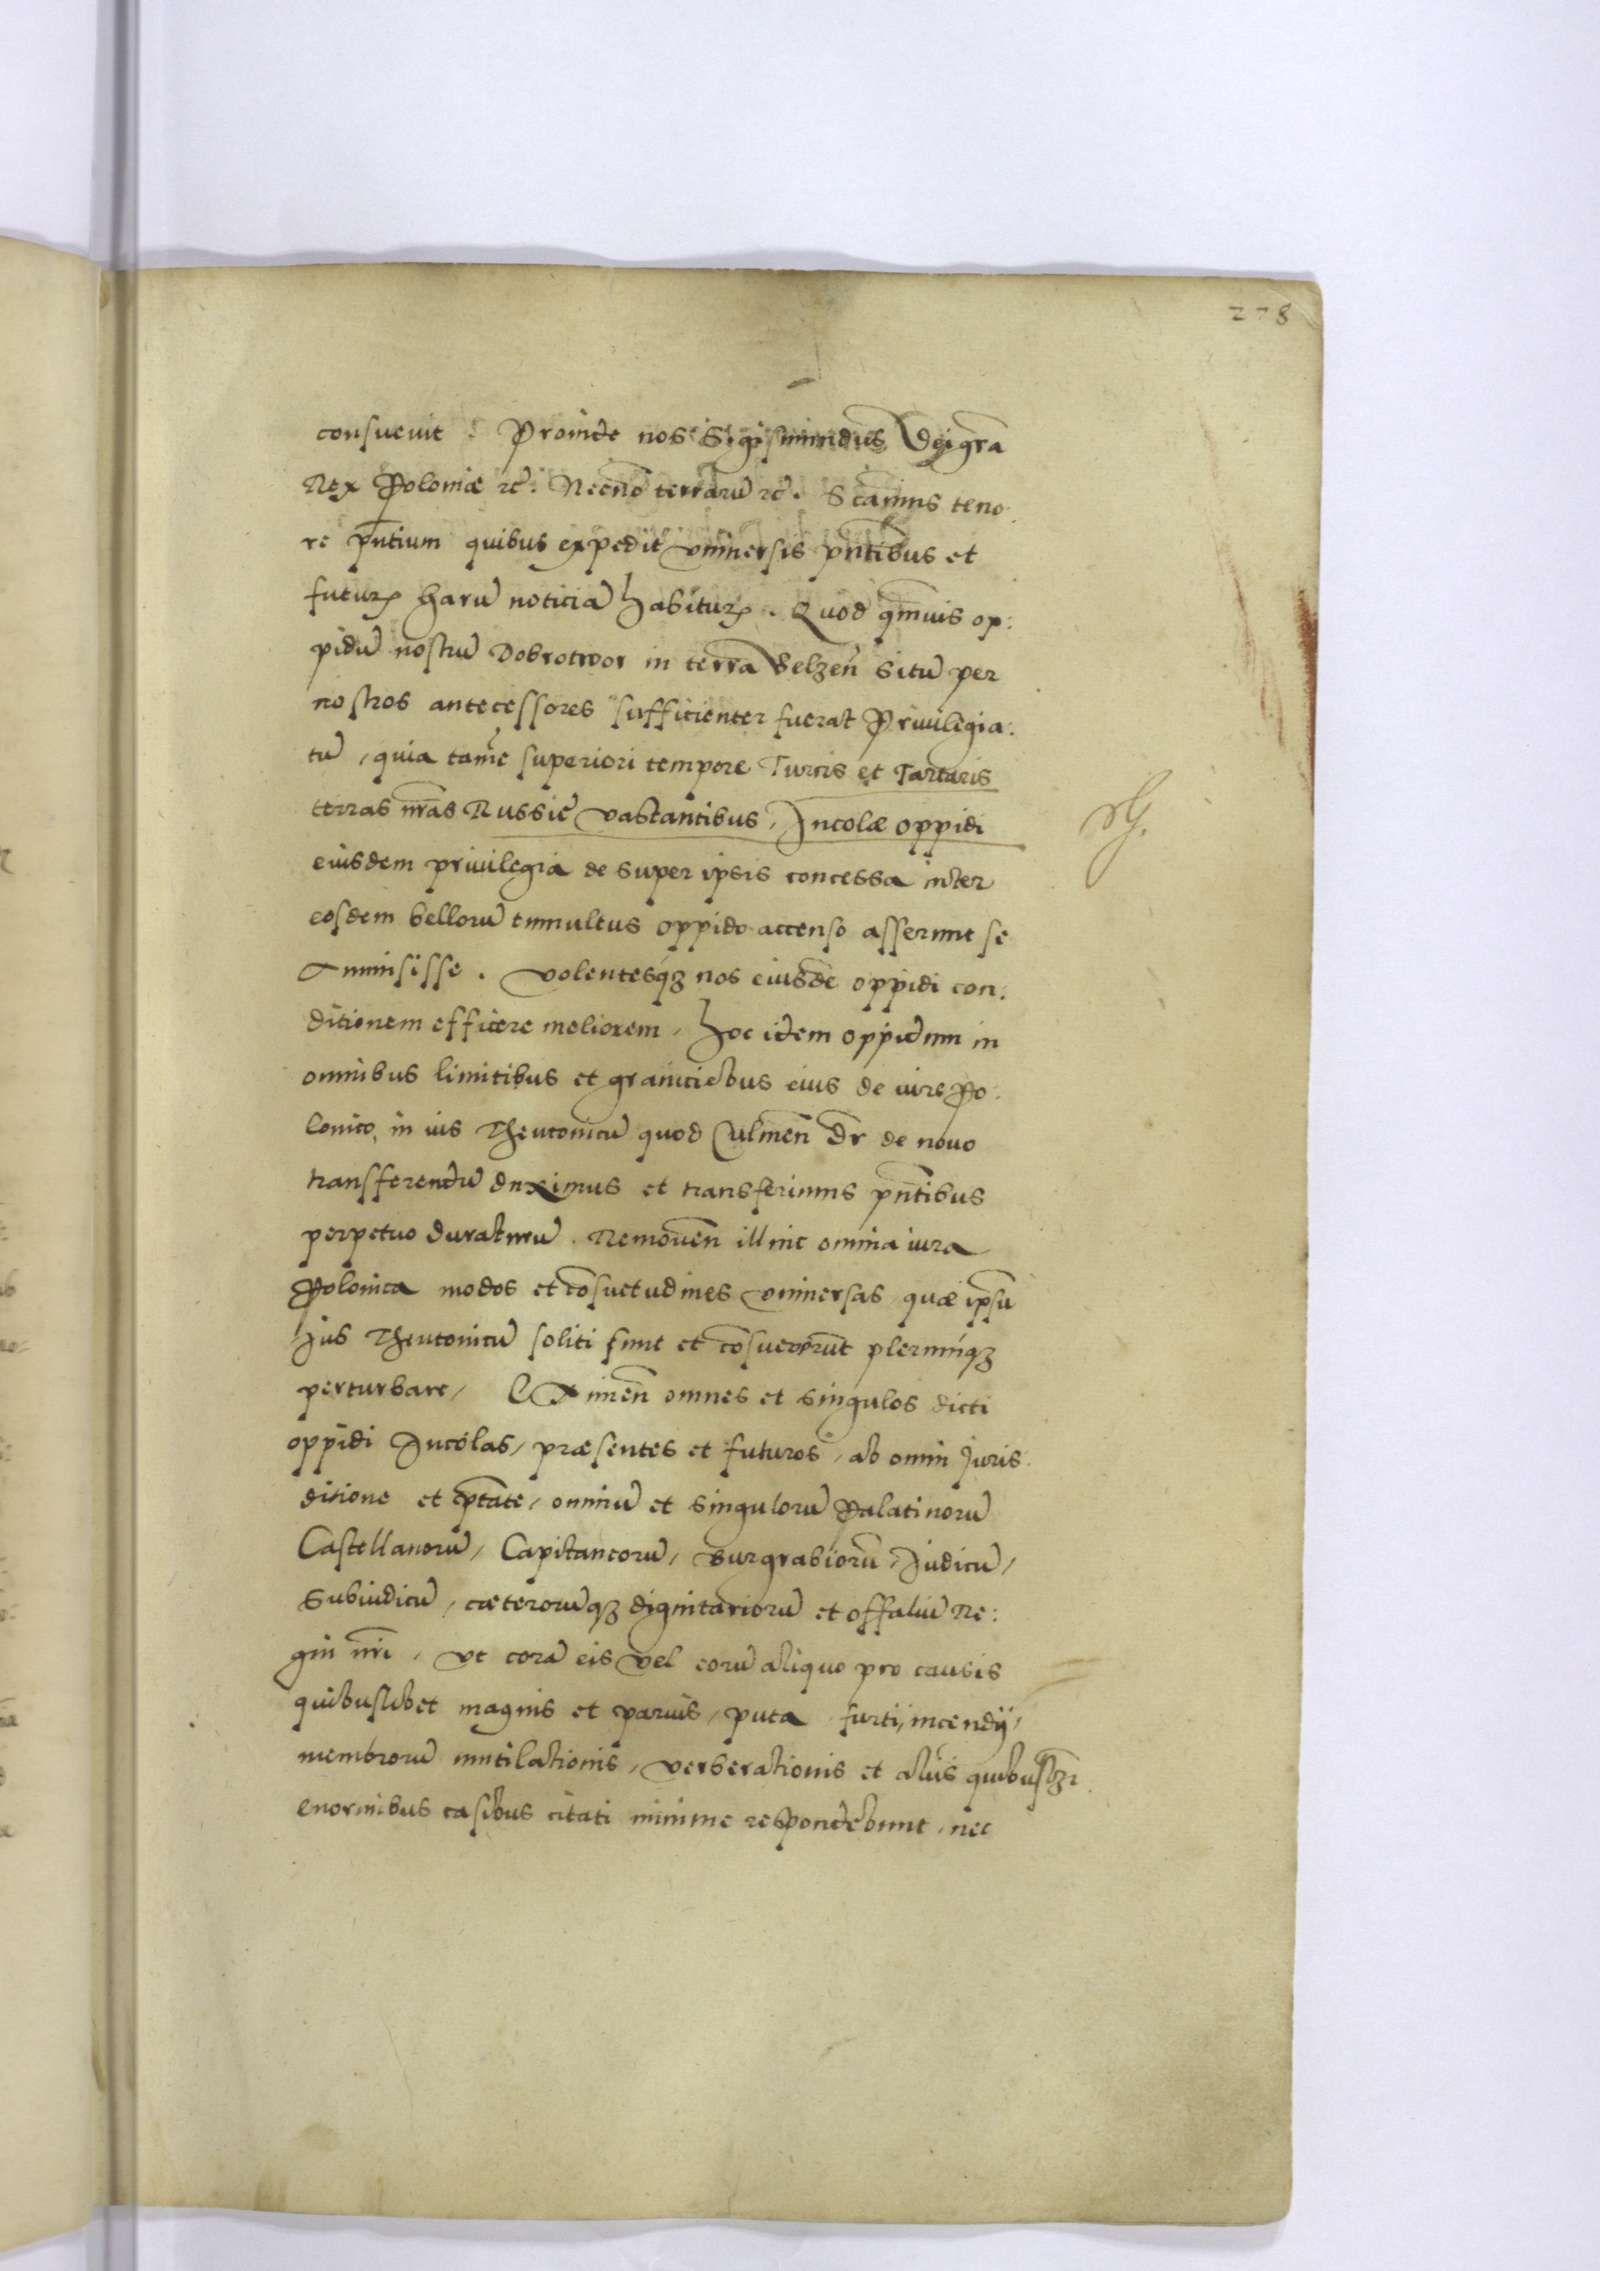 278
consuevit. Proinde nos Sigismundus Dei gra
Rex Poloniæ rc. Necno terraru rc. Scimus teno
re pntium quibus expedit vniuersis pntibus et
futur haru noticia habitur. Quod qmuis op:
pidu nostru Dobrotwor in terra Belzen situ per
nostros antecessores sufficienter fuerat Priuilegia:
tu, quia tame superiori tempore Turcis et Tartaris
terras nras Russie vastantibus, Incolæ oppidi
eiusdem priuilegia de super ipsis concessa inter
eosdem belloru tumultus oppido accenso asserunt se
amisisse. Volentesq3 nos eiusde oppidi con:
ditionem efficere meliorem, hoc idem oppidum in
omnibus limitibus et graniciebus eius de iure Po:
lonico, in ius Theutonicu quod Culmen dr de nouo
transferendu duximus et transferimus pntibus
perpetuo duraturu. Remouen illinc omnia iura
Polonica modos et cosuetudines vniuersas, quæ ipsu
Jus Theutonicu soliti sunt et cosueuerut plerumq3
perturbare, Eximen omnes et singulos dicti
oppidi Incolas, præsentes et futuros, ab omni Juris:
ditione et ptate, omniu et singuloru Palatinoru
Castellanoru, Capitaneoru, Burgrabioru, Judicu,
Subiudicu, cæteroruq3 dignitarioru et offaliu Re:
gni nri, vt cora eis vel eoru aliquo pro causis
quibuslibet magnis et paruis, puta furti, incendij,
membroru mutilationis, verberationis et alijs quibusq3
enormibus casibus citati minime respondebunt, nec